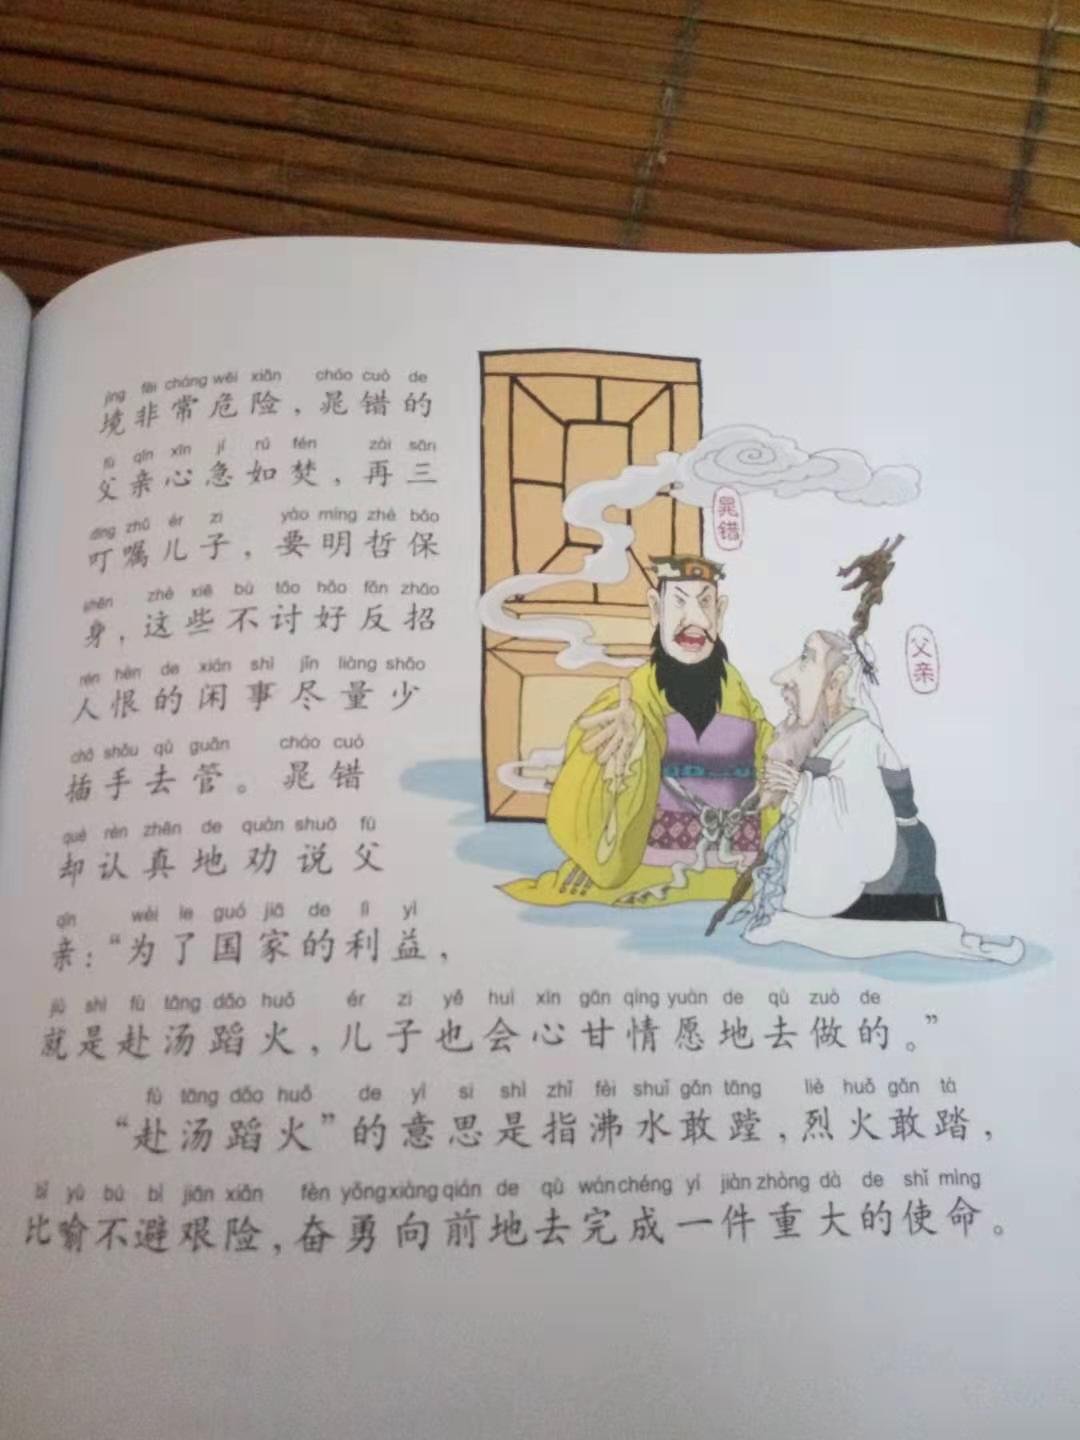 jìng fēi cháng wēi xiǎn cháo cuò de
境非常危险，晁错的
fù qīn xīn jí rú fén zài sān
父亲心急如焚，再三
dīng zhǔ ér zi yào míng zhé bǎo
叮嘱儿子，要明哲保
shēn zhè xiē bù tǎo hǎo fǎn zhāo
身，这些不讨好反招
rén hèn de xián shì jǐn liàng shǎo
人恨的闲事尽量少
chā shǒu qù guǎn cháo cuò
插手去管。晁错
què rèn zhēn de quàn shuō fù
却认真地劝说父
qīn wèi le guó jiā de lì yì
亲：“为了国家的利益，
jiù shì fù tāng dǎo huǒ ér zi yě huì xīn gān qíng yuàn de qù zuò de
就是赴汤蹈火，儿子也会心甘情愿地去做的。”
fù tāng dǎo huǒ de yì si shì zhǐ fèi shuǐ gǎn tāng liè huǒ gǎn tà
“赴汤蹈火”的意思是指沸水敢蹚，烈火敢踏，
bǐ yù bú bì jiān xiǎn fèn yǒng xiàng qián de qù wán chéng yí jiàn zhòng dà de shǐ mìng
比喻不避艰险，奋勇向前地去完成一件重大的使命。
晁错
父亲